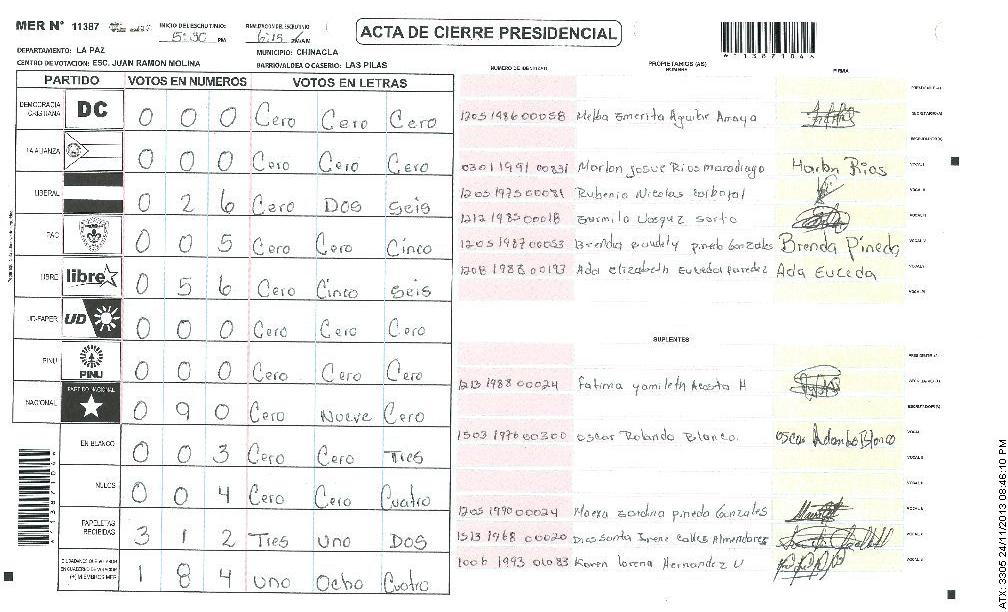 MER N° 11387
INICIO DEL ESCRUTINIO: 5:30 PM
6:15
ACTA DE CIERRE PRESIDENCIAL
DEPARTAMENTO: LA PAZ
MUNICIPIO: CHINACLA
CENTRO DE VOTACION: ESC. JUAN RAMON MOLINA
BARRIO/ALDEA O CASERIO: LAS PILAS
PARTIDO VOTOS EN NUMEROS VOTOS EN LETRAS
NUMERO DE IDENTIDAD PROPIETARIOS (AS) NOMBRE FIRMA
DEMOCRACIA CRISTIANA DC 0 0 0 Cero Cero Cero
LA ALIANZA 0 0 0 Cero Cero Cero
LIBERAL 0 2 6 Cero Dos Seis
PAC 0 0 5 Cero Cero Cinco
LIBRE libre 0 5 6 Cero Cinco Seis
UD-FAPER UD 0 0 0 Cero Cero Cero
PINU PINU 0 0 0 Cero Cero Cero
NACIONAL PARTIDO NACIONAL 0 9 0 Cero Nueve Cero
EN BLANCO 0 0 3 Cero Cero Tres
NULOS 0 0 4 Cero Cero Cuatro
PAPELETAS RECIBIDAS 3 1 2 Tres uno Dos
1 8 4 uno Ocho Cuatro
1205 1986 00058 Melba Emerita Aguilar Amaya
0301 1991 00831 Marlon Josue Rios maradiaga Marlon Rios
1205 1975 00081 Rubenio Nicolas
1212 1985 00018 Vasquez
1205 1987 00053 Brenda pineda Gonzales Brenda Pineda
1208 1988 00193 Ada elizabeth Euceda paredez Ada Euceda
SUPLENTES
1213 1988 00024 Fatima yamileth Acosta M
1503 1976 00300 oscar Rolando Blanco.
1205 1990 00024 pineda Gonzales
1513 1968 00020 Irene Almendares
1006 1993 01083 Karen lorena Hernandez U
ATX: 3305 24/11/2013 08:46:10 PM